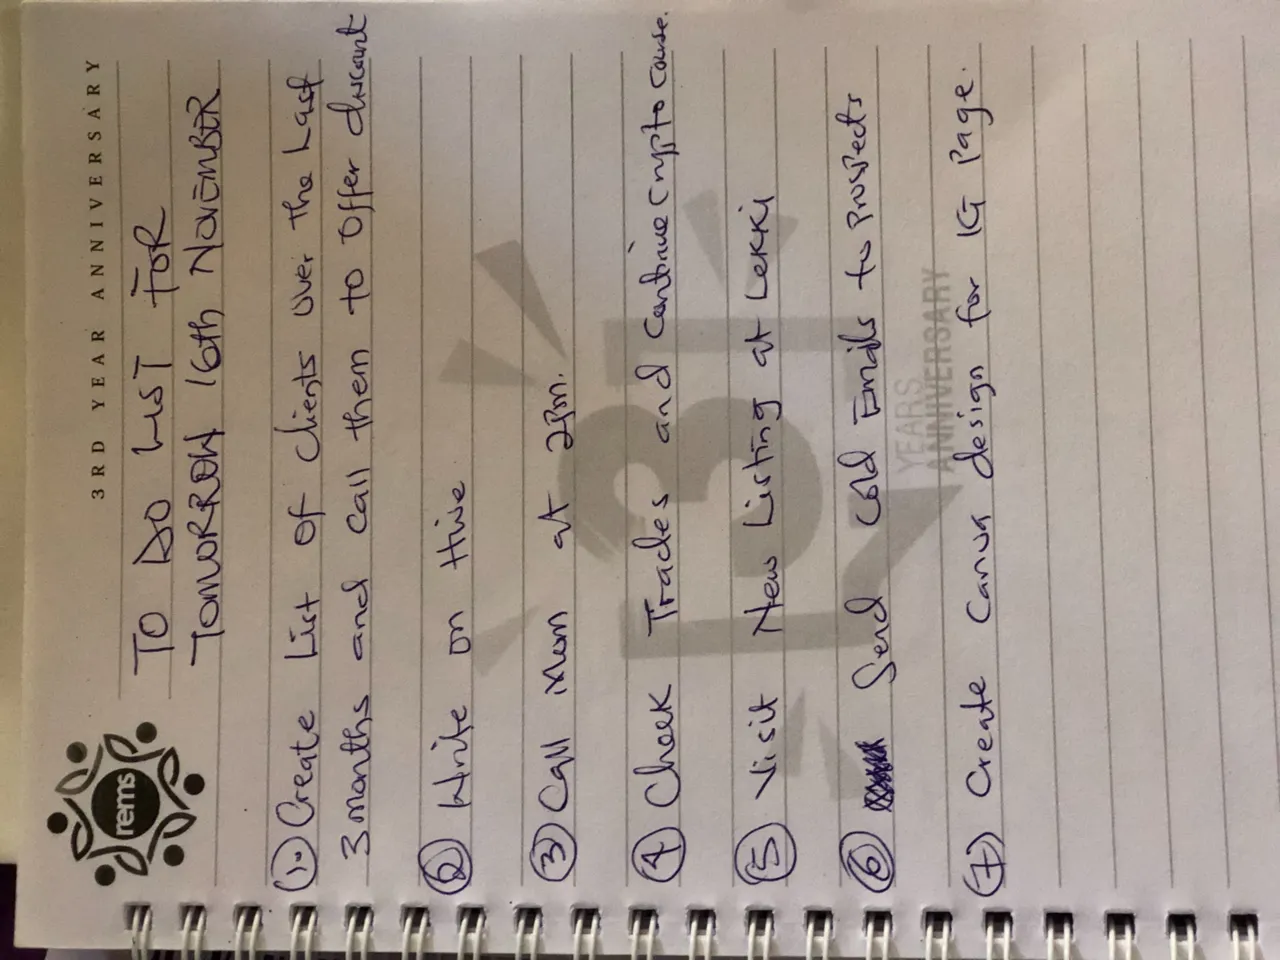 3RD YEAR ANNIVERSARY
rems
TO DO LIST FOR
TOMORROW 16th NOVEMBER
1. Create List Of Clients Over the Last
3 months and Call them to Offer discount
2 Write on Hive
3 Call Mum at 2pm.
4 Check Trades and Continue Crypto Course.
5 Visit New Listing at Lekki
6 Send Cold Emails to Prospects
7 Create Canva design for IG Page.
3
YEARS
ANNIVERSARY